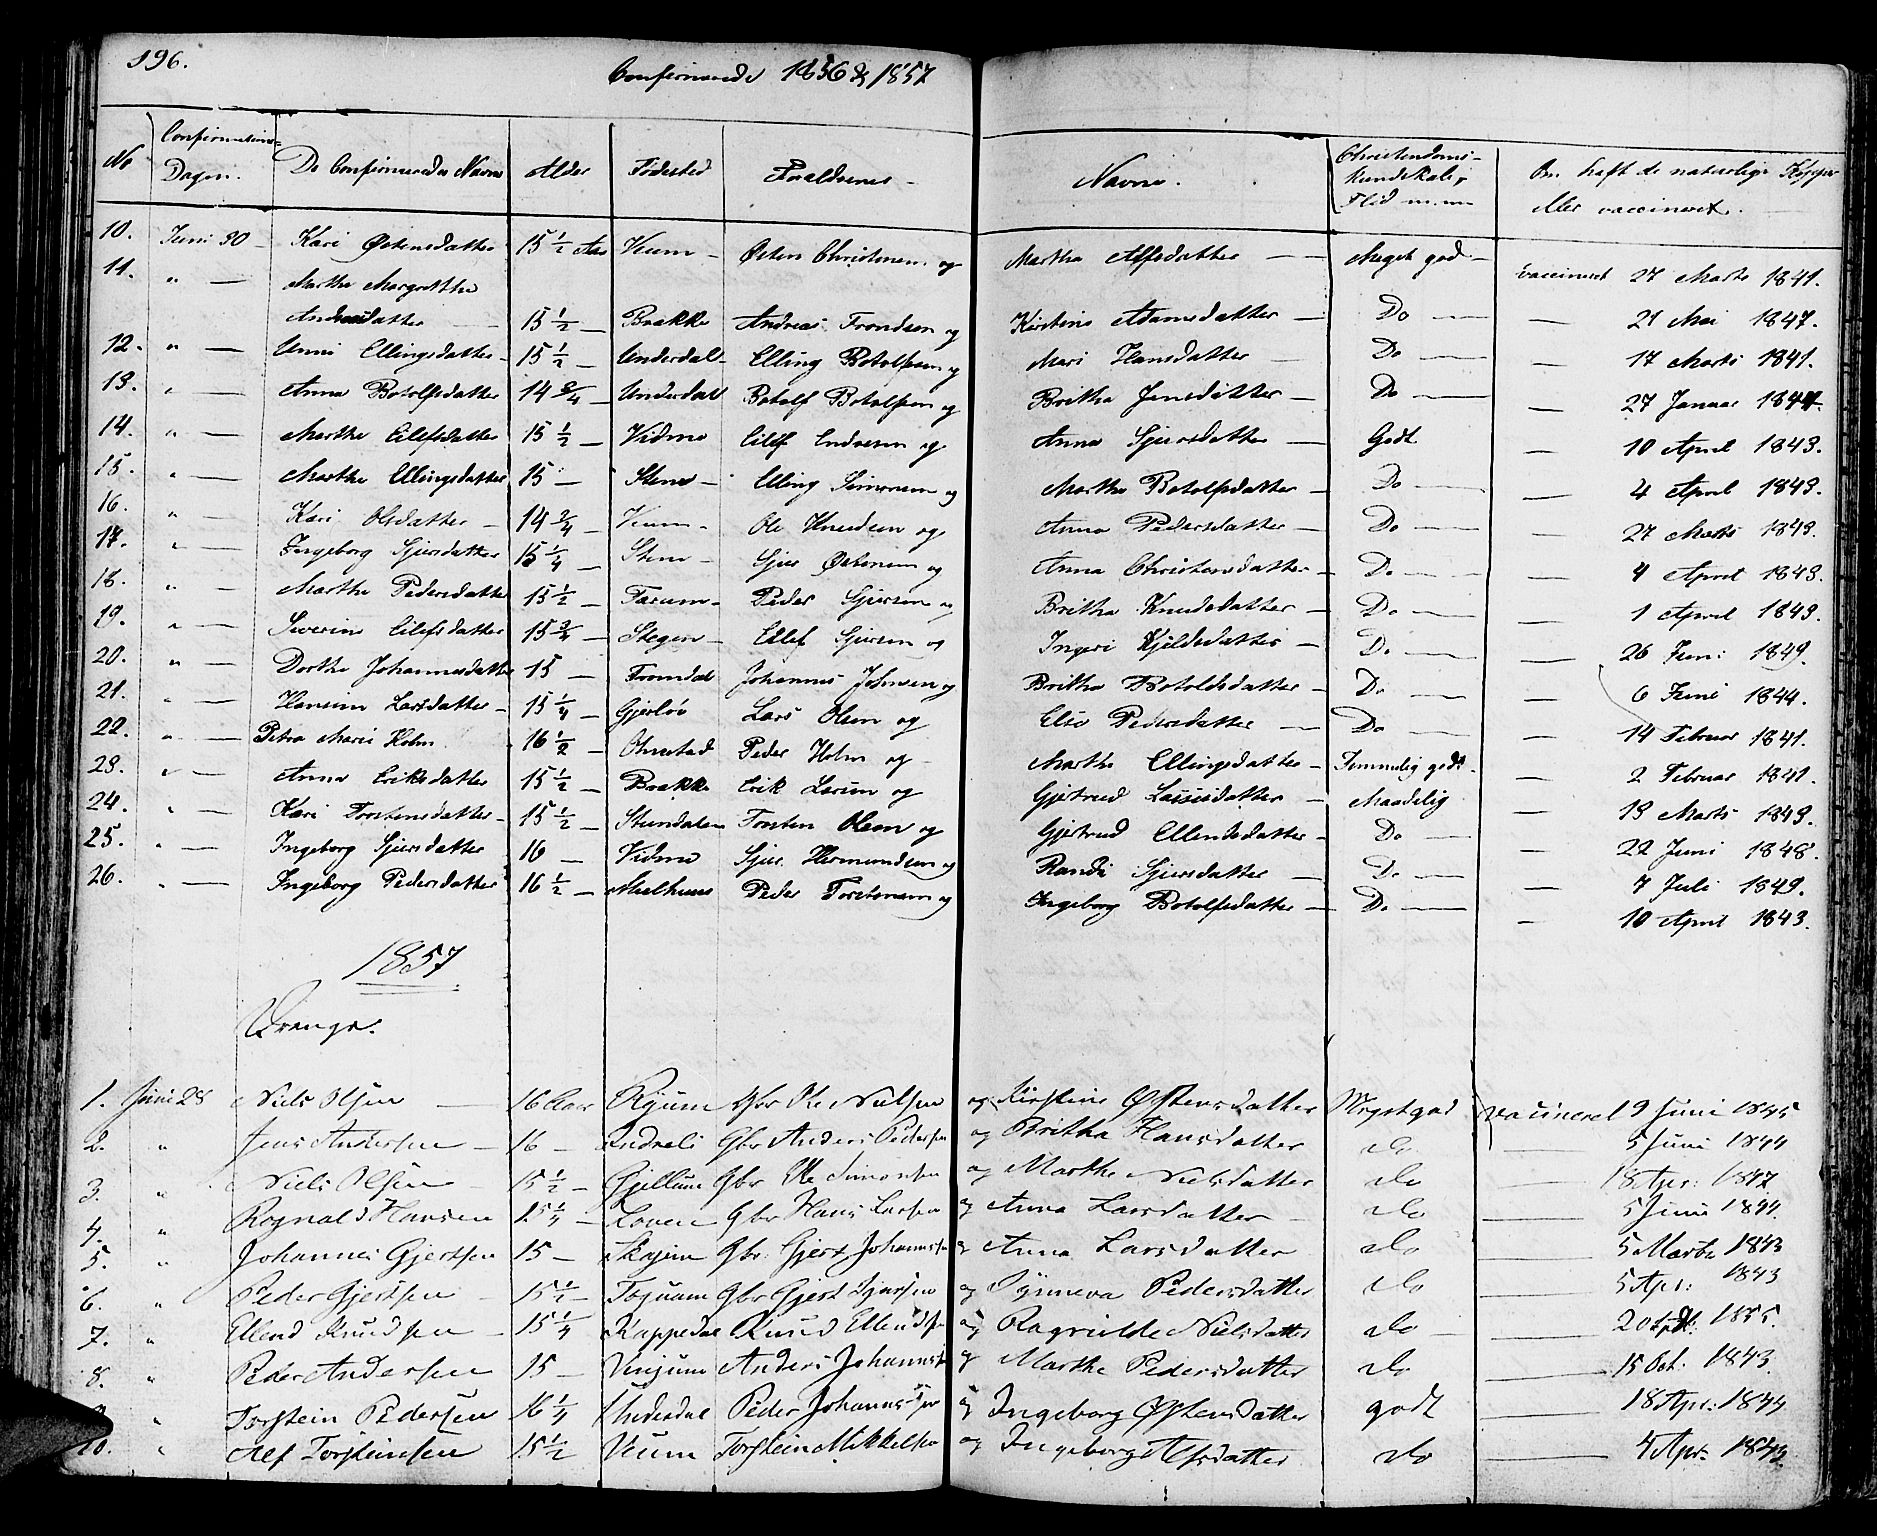 196.
Confirmerede 1856 & 1857
No Confirmations- Dagen. De Confirmeredes Navne Alder Fødested Forældrenes - Navne. Christendoms- kundskab, Flid m.m. Om haft de naturlige Kopper eller vaccineret.
10. Juni 30 - Kari Østensdatter 15 1/2 Aar Veum - Østen Christensen og Martha Alfsdatter - Meget god - vaccineret 27 Marts 1841.
11. " - Marthe Margrethe
Andreasdatter 15 1/2 - Brække Andreas Trondsen og Kirstine Adamsdatter - Do - 21 Mai 1847.
12. " - Unni Ellingsdatter - 15 1/2 - Underdal - Elling Botolfsen og Mari Hansdatter - Do - 17 Marts 1841.
13. " - Anna Botolfsdatter 14 3/4 - Underdal Botolf Botolfsen og Britha Jensdatter - Do - 27 Januar
14. " - Marthe Eilefsdatter 15 1/2 - Vidme Eilef Endresen og Anna Sjursdatter - Godt - 10 April 1843.
15. " - Marthe Ellingsdatter 15 - Stene - Elling Simonsen og Martha Botolfsdatter - Do - 4 April 1843.
16. " - Kari Olsdatter - 14 3/4 - Veum - Ole Knudsen og Anna Pedersdatter - Do - 27 Marts 1843.
17. " - Ingeborg Sjursdatter 15 1/4 - Stene - Sjur Østensen og Anna Christensdatter - Do - 4 April 1843.
18. " - Marthe Pedersdatter 15 1/2 - Farum - Peder Sjursen og Britha Knudsdatter - Do - 1 April 1843.
19. " - Severine Eilefsdatter 15 3/4 - Stegen - Eilef Sjursen og Ingeri Kjeldsdatter - Do - 26 Juni 1849.
20. " - Dorthe Johannesdatter 15 - Fromdal Johannes Johnsen og Britha Botolfsdatter - Do - 6 Juni 1844.
21. " - Hansine Larsdatter - 15 1/4 - Gjerløv Lars Olsen og Else Pedersdatter - Do - 14 Februar 1841.
22. " - Petra Marie Holm 16 1/2 - Ornestad Peder Holm og - Marthe Ellingsdatter - Temmelig godt - 2 Februar 1841.
23. " - Anna Eriksdatter 15 1/2 - Brække Erik Larsen og Gjertrud Lassesdatter - Maadelig - 13 Marts 1843.
24. " - Kari Torstensdatter - 15 1/2 - Stundalen Torsten Olsen og Gjertrud Ellendsdatter - Do - 22 Juni 1848.
25. " - Ingeborg Sjursdatter 16 - Vidme Sjur Hermundsen og Randi Sjursdatter - Do - 7 Juli 1849.
26. " - Ingeborg Pedersdatter 16 1/2 - Melhuus Peder Torstensen og Ingeborg Botolfsdatter - Do - 10 April 1843.
1857
Drenge.
1. Juni 28 Niels Olsen - 16 Aar Ryum Gbr Ole Nielsen og Kirstine Østensdatter Meget god vaccineret 9 Juni 1845
2. " Jens Andersen - 16 - Indreli Gbr Anders Pedersen og Britha Hansdatter do - 5 Juni 1844
3. " Niels Olsen - 15 1/2 - Gjellum Gbr Ole Simonsen og Marthe Nielsdatter do - 18 Apr: 1847
4. " Rognald Hansen 15 1/4 - Loven Gbr Hans Larsen og Anna Larsdatter - do - 5 Juni 1844.
5. " Johannes Gjertsen 15 - Skajem Gbr. Gjert Johannsen og Anna Larsdatter do - 5 Marts 1843
6. " Peder Gjertsen - 15 1/2 - Gbr Gjert Sjursen og Synneva Pedersdatter do - 5 Apr: 1843
7. " Ellend Knudsen - 15 1/4 Kappedal Knud Ellendsen og Ragnilde Nielsdatter do - 20 1855.
8. " Peder Andersen 15 - Vinjum Anders Johannsen og Marthe Pedersdatter do - 15 Oct: 1843.
9. " Torstein Pedersen 16 1/4 Underdal Peder Johannesen og Ingeborg Østensdatter godt - 18 Apr: 1844
10. " Alf Torsteinsen 15 1/2 Veum Torstein Mikkelsen og Ingeborg Alfsdatter do - 4 Apr. 1843.